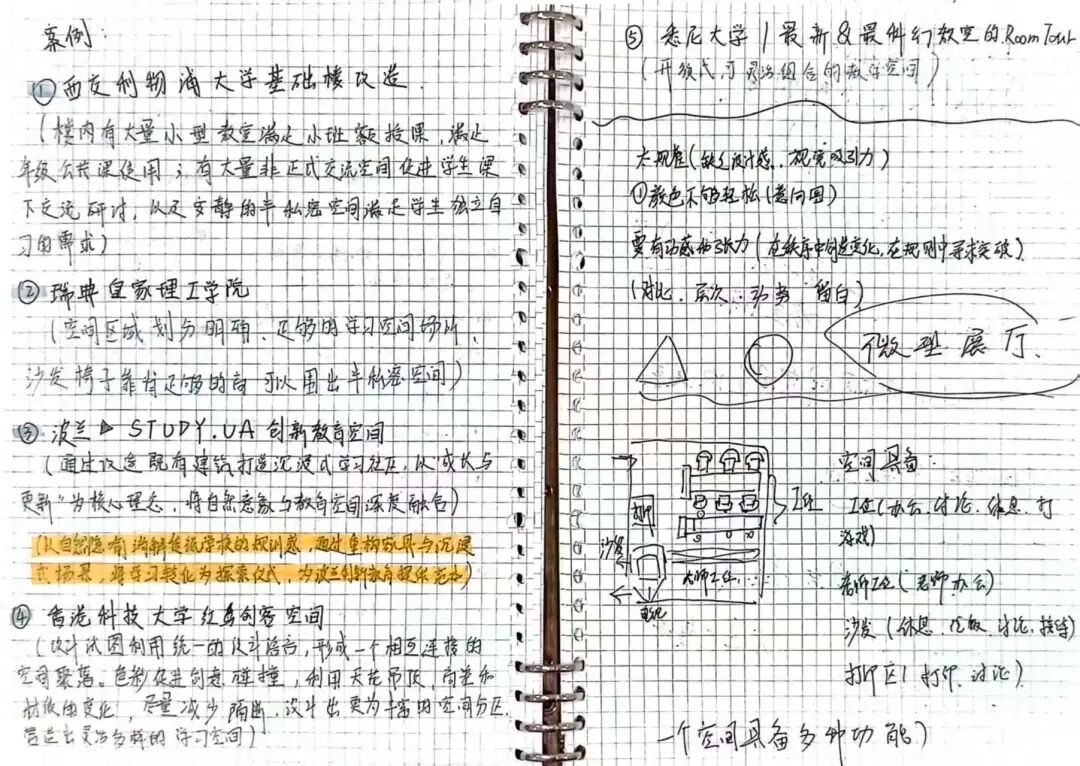 案例:
①西交利物浦大学基础楼改造.
(楼内有大量小型教室满足小班额授课,满足
年级公共课使用;有大量非正式交流空间促进学生课
下交流研讨,以及安静的半私密空间满足学生独立自
习的需求)
②瑞典皇家理工学院
(空间区域划分明确、足够的学习空间场所,
沙发椅子靠背足够的高 可以围出半私密空间)
③波兰▶STUDY.UA 创新教育空间
(通过改造既有建筑打造沉浸式学习社区,以"成长与
更新"为核心理念,将自然意象与教育空间深度融合)
(以自然隐喻消解传统学校的规训感,通过重构家具与沉浸
式场景,将学习转化为探索仪式,为波兰创新教育提供范本)
④香港科技大学红鸟创客空间
(设计试图利用统一的设计语言,形成一个相互连接的
空间聚落。色彩促进创意碰撞,利用天花吊顶,高差和
材质的变化,尽量减少隔断,设计出更为丰富的空间分区,
营造出灵活多样的学习空间)
⑤悉尼大学|最新&最科幻教室的Room Tour
(开放式,可灵活组合的教学空间)
太规整(缺乏设计感、视觉吸引力)
①颜色不够轻松(意向图)
要有动感和张力(在秩序中创造变化,在规则中寻求突破)
(对比、层次、动势、留白)
微型展厅、
打印
沙发
工位
老师工位
电视
空间具备:
工位(办公、讨论、休息、打
游戏)
老师工位(老师办公)
沙发(休息、讨论、接待)
打印区(打印、讨论)
一个空间具备多种功能)